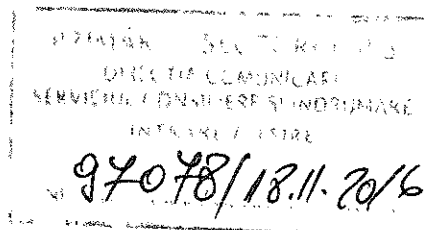 DIRECȚIA COMUNICARE
SERVICIUL CONSILIERE ȘI ÎNDRUMARE
INTRARE / IEȘIRE
97078/18.11.2016